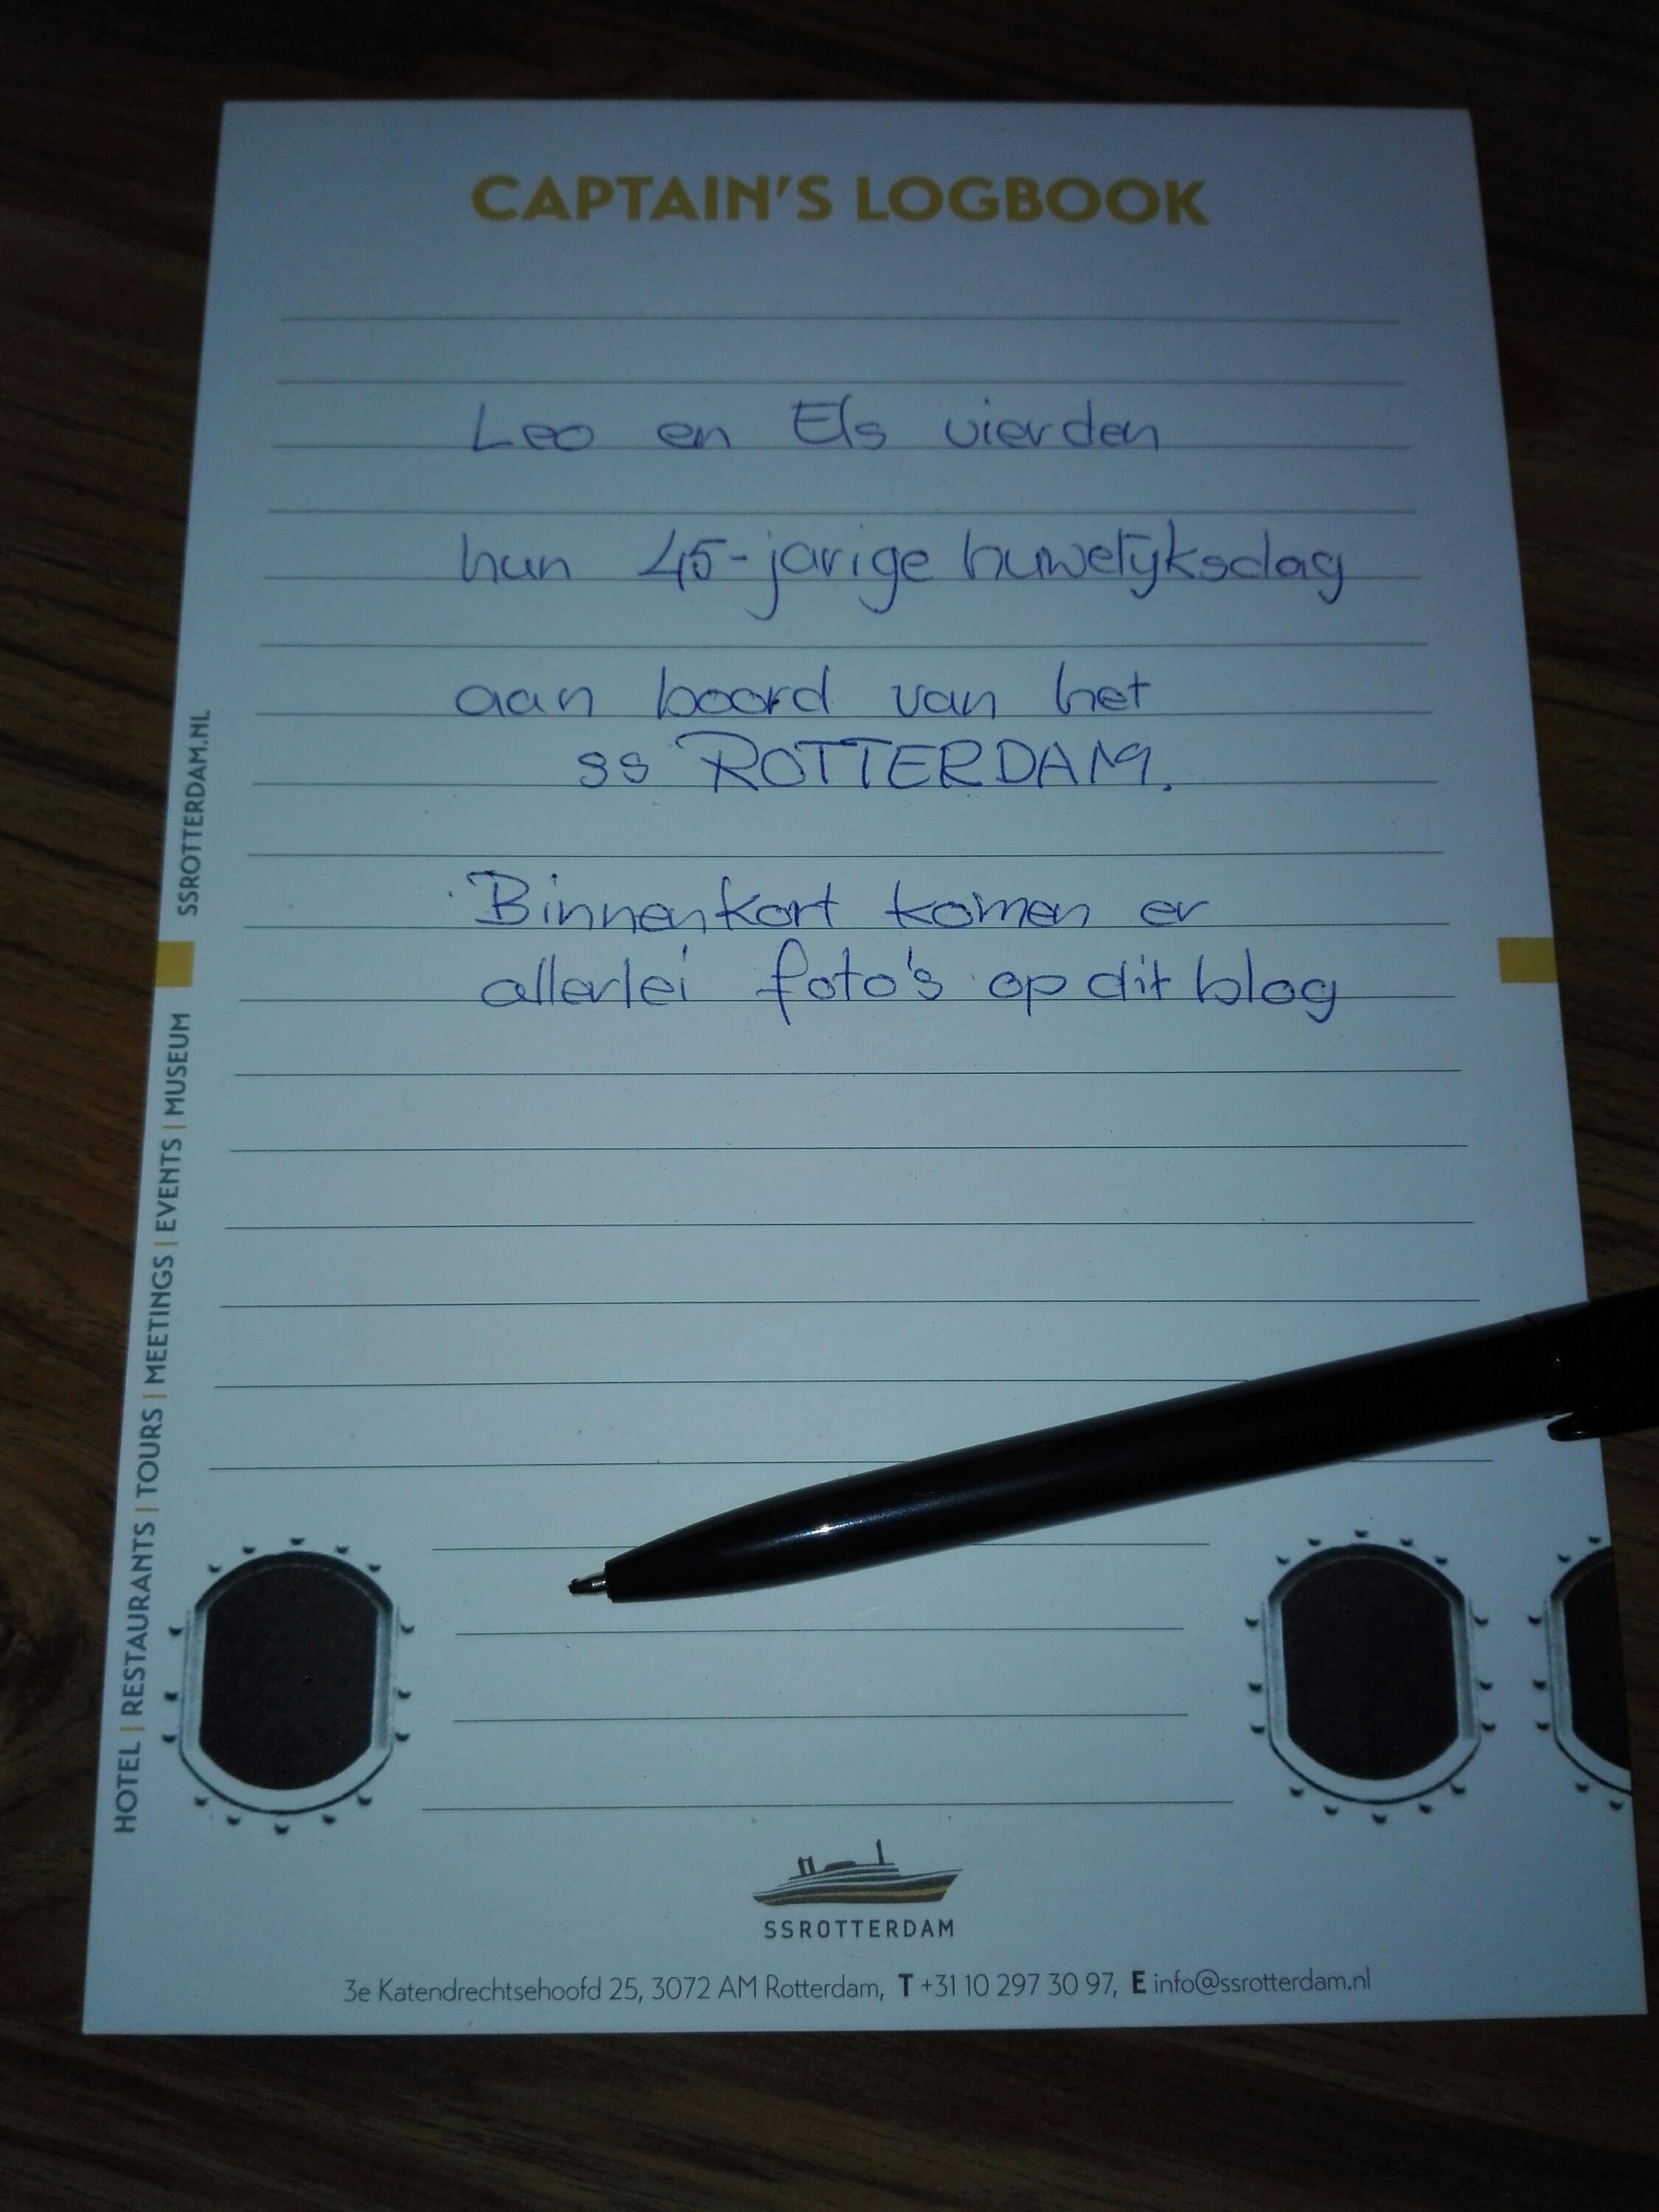 CAPTAIN'S LOGBOOK
Leo en Els vierden
hun 45-jarige huwelijksdag
aan boord van het
ss ROTTERDAM.
Binnenkort komen er
allerlei foto's op dit blog
HOTEL | RESTAURANTS | TOURS | MEETINGS | EVENTS | MUSEUM
SSROTTERDAM.NL
SSROTTERDAM
3e Katendrechtsehoofd 25, 3072 AM Rotterdam, T +31 10 297 30 97, E info@ssrotterdam.nl